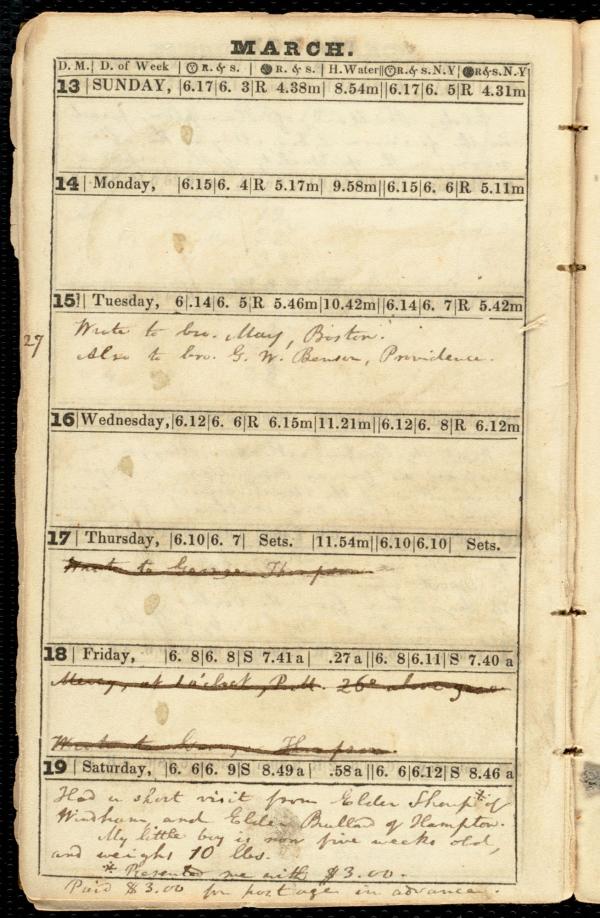 MARCH.
D. M.| D. of Week |☉ R. & s. |● R. & s.|H.Water||☉R.& s.N.Y|●R&s.N.Y
13 | SUNDAY, |6.17|6. 3|R 4.38m| 8.54m||6.17|6. 5|R 4.31m
14 | Monday, |6.15|6. 4|R 5.17m| 9.58m||6.15|6. 6|R 5.11m
15 | Tuesday, 6|.14|6. 5|R 5.46m|10.42m||6.14|6. 7|R 5.42m
Wrote to bro. May, Boston.
27
Also to bro. G. W. Benson, Providence.
16 |Wednesday,|6.12|6. 6|R 6.15m|11.21m||6.12|6. 8|R 6.12m
17 | Thursday, |6.10|6. 7| Sets. |11.54m||6.10|6.10| Sets.
Wrote to George Thompson
18 | Friday, |6. 8|6. 8|S 7.41a| .27a||6. 8|6.11|S 7.40 a
Mercy, at o'clock, P.M. 26° above zero
Wrote to George Thompson.
19 | Saturday, |6. 6|6. 9|S 8.49a| .58a||6. 6|6.12|S 8.46 a
Had a short visit from Elder Sharp* of
Windham, and Elder Bullad of Hampton.
My little boy is now five weeks old,
and weighs 10 lbs.
* Presented me with $3.00.
Paid $3.00 for postage in advance.